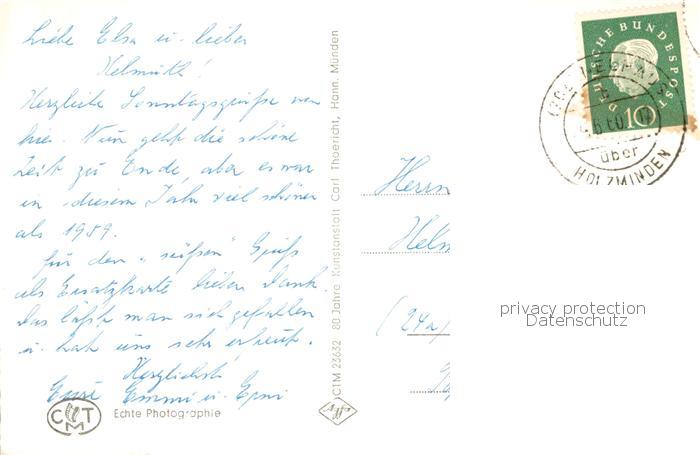 Liebe Elsa u. lieber
Helmuth!
Herzliche Sonntagsgrüße von
hier. Nun geht die schöne
Zeit zu Ende, aber es war
in diesem Jahr viel schöner
als 1959.
Für den „süßen" Gruß
als Ersatzkarte lieben Dank.
Das läßt man sich gefallen
u. hat uns sehr erfreut.
Herzlichst
Eure Emmi u.
CTM
Echte Photographie
CTM 23632 80 Jahre Kunstanstalt Carl Thoericht, Hann. Münden
Herrn
Helm
(24a)
DEUTSCHE BUNDESPOST
10
über
HOLZMINDEN
privacy protection
Datenschutz